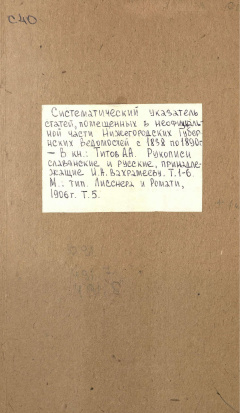 С40
Систематический указатель
статей, помещенных в неофициаль-
ной части Нижегородских губер-
нских ведомостей с 1838 по 1890г.
— В кн.: Титов А.А. Рукописи
славянские и русские, принадле-
жащие И.А. Вахрамееву. Т.1-6.
М.: тип. Лисснера и Романа,
1906г. Т.5.